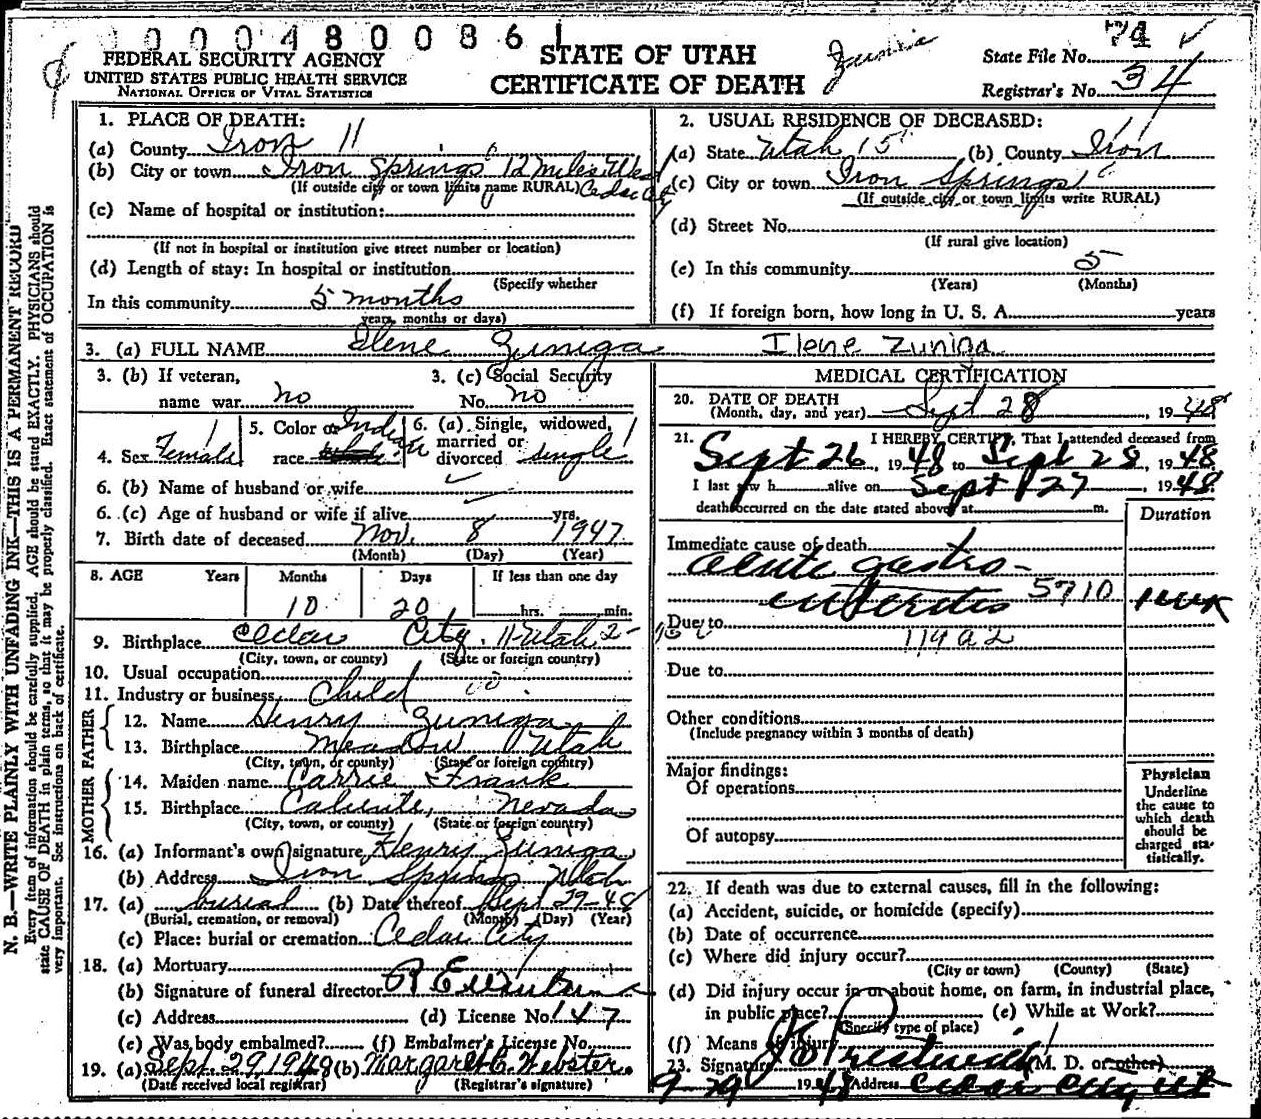 0 0 0 0 4 8 0 0 8 6 1
FEDERAL SECURITY AGENCY
UNITED STATES PUBLIC HEALTH SERVICE
NATIONAL OFFICE OF VITAL STATISTICS
STATE OF UTAH
CERTIFICATE OF DEATH
Zuniga
State File No. 74
Registrar's No. 34
N. B.—WRITE PLAINLY WITH UNFADING INK—THIS IS A PERMANENT RECORD
Every item of information should be carefully supplied. AGE should be stated EXACTLY. PHYSICIANS should
state CAUSE OF DEATH in plain terms, so that it may be properly classified. Exact statement of OCCUPATION is
very important. See instructions on back of certificate.
1. PLACE OF DEATH:
(a) County Iron 11
(b) City or town Iron Springs 12 miles West
(If outside city or town limits name RURAL) Cedar City
(c) Name of hospital or institution:
(If not in hospital or institution give street number or location)
(d) Length of stay: In hospital or institution
(Specify whether
In this community 5 months
years, months or days)
2. USUAL RESIDENCE OF DECEASED:
(a) State Utah 15 (b) County Iron
(c) City or town Iron Springs
(If outside city or town limits write RURAL)
(d) Street No.
(If rural give location)
(e) In this community 5
(Years) (Months)
(f) If foreign born, how long in U. S. A. years
3. (a) FULL NAME Ilene Zuniga Ilene Zuniga
3. (b) If veteran,
name war no
3. (c) Social Security
No. no
4. Sex Female
5. Color or Indian
race
6. (a) Single, widowed,
married or
divorced single
6. (b) Name of husband or wife
6. (c) Age of husband or wife if alive yrs.
7. Birth date of deceased Nov. 8 1947
(Month) (Day) (Year)
8. AGE Years Months Days If less than one day
10 20 hrs. min.
9. Birthplace Cedar City. 11 Utah 2
(City, town, or county) (State or foreign country)
10. Usual occupation
11. Industry or business Child 00
FATHER
12. Name Henry Zuniga
13. Birthplace Meadow Utah
(City, town, or county) (State or foreign country)
MOTHER
14. Maiden name Carrie Frank
15. Birthplace Caliente, Nevada
(City, town, or county) (State or foreign country)
16. (a) Informant's own signature Henry Zuniga
(b) Address Iron Springs Utah
17. (a) burial (b) Date thereof Sept 29-48
(Burial, cremation, or removal) (Month) (Day) (Year)
(c) Place: burial or cremation Cedar City
18. (a) Mortuary
(b) Signature of funeral director
(c) Address (d) License No. 147
(e) Was body embalmed? (f) Embalmer's License No.
19. (a) Sept. 29, 1948 (b) Margaret C. Webster
(Date received local registrar) (Registrar's signature)
MEDICAL CERTIFICATION
20. DATE OF DEATH
(Month, day, and year) Sept 28, 1948
21. I HEREBY CERTIFY, That I attended deceased from
Sept 26, 1948 to Sept 28, 1948
I last saw h alive on Sept 27, 1948
death occurred on the date stated above at m.
Duration
Immediate cause of death
Acute gastro-
enteritis 5710 1 wk
Due to
119 a 2
Due to
Other conditions
(Include pregnancy within 3 months of death)
Major findings:
Of operations
Of autopsy
Physician
Underline
the cause to
which death
should be
charged sta-
tistically.
22. If death was due to external causes, fill in the following:
(a) Accident, suicide, or homicide (specify)
(b) Date of occurrence
(c) Where did injury occur?
(City or town) (County) (State)
(d) Did injury occur in or about home, on farm, in industrial place,
in public place? (e) While at Work?
(Specify type of place)
(f) Means of injury
23. Signature Prestwich (M. D. or other)
9-29 1948 Address Cedar City Ut